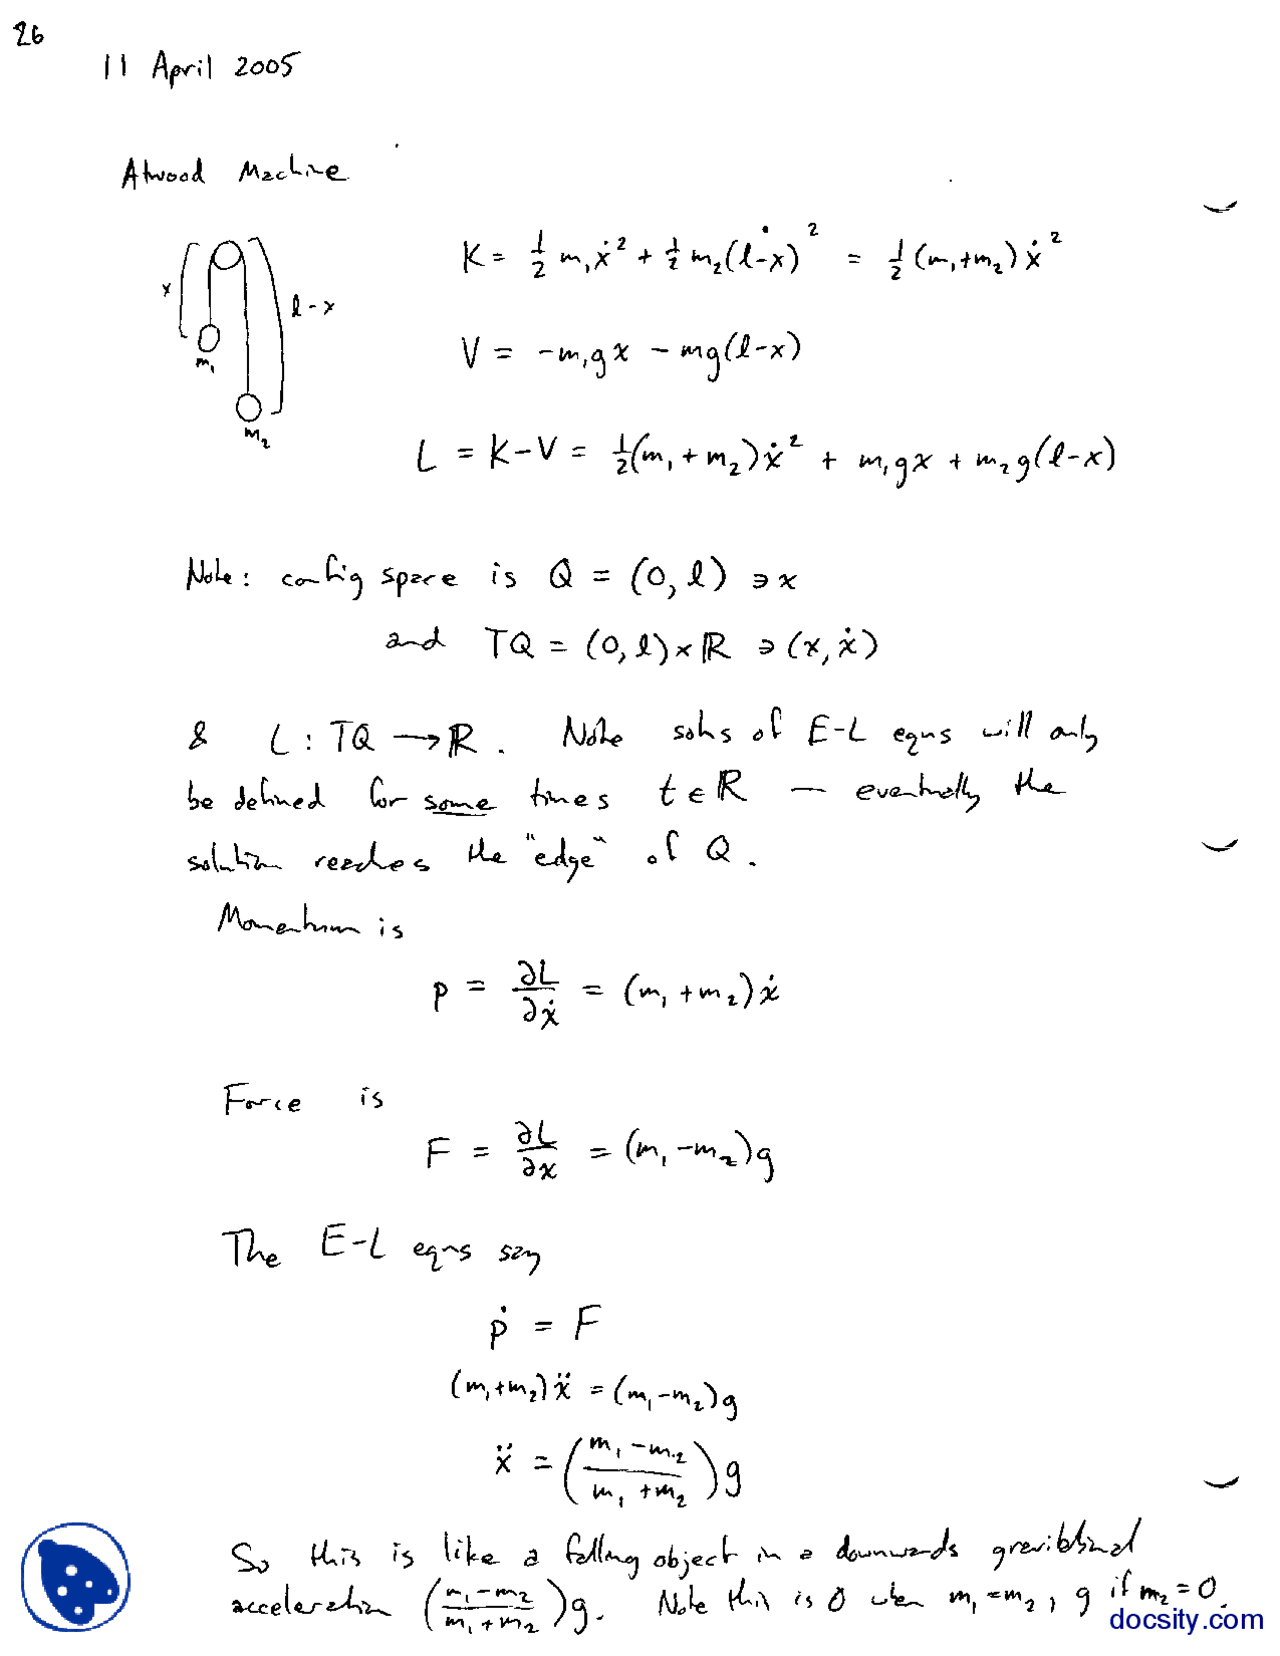 26
11 April 2005
Atwood Machine
x
l-x
m₁
m₂
K = ½ m₁ẋ² + ½ m₂(l-̇x)² = ½ (m₁+m₂) ẋ²
V = -m₁gx - mg(l-x)
L = K-V = ½(m₁+m₂)ẋ² + m₁gx + m₂g(l-x)
Note: config space is Q = (0, l) ∋ x
and TQ = (0, l)×ℝ ∋ (x, ẋ)
& L : TQ → ℝ. Note solns of E-L eqns will only
be defined for some times t ∈ ℝ — eventually the
solution reaches the "edge" of Q.
Momentum is
p = ∂L/∂ẋ = (m₁+m₂)ẋ
Force is
F = ∂L/∂x = (m₁-m₂)g
The E-L eqns say
ṗ = F
(m₁+m₂)ẍ = (m₁-m₂)g
ẍ = ((m₁-m₂)/(m₁+m₂))g
So this is like a falling object in a downwards gravitational
acceleration ((m₁-m₂)/(m₁+m₂))g. Note this is 0 when m₁=m₂, g if m₂=0.
docsity.com